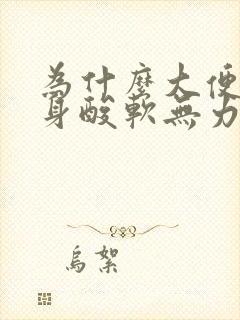 為什麼大便
身酸軟無力
烏絮